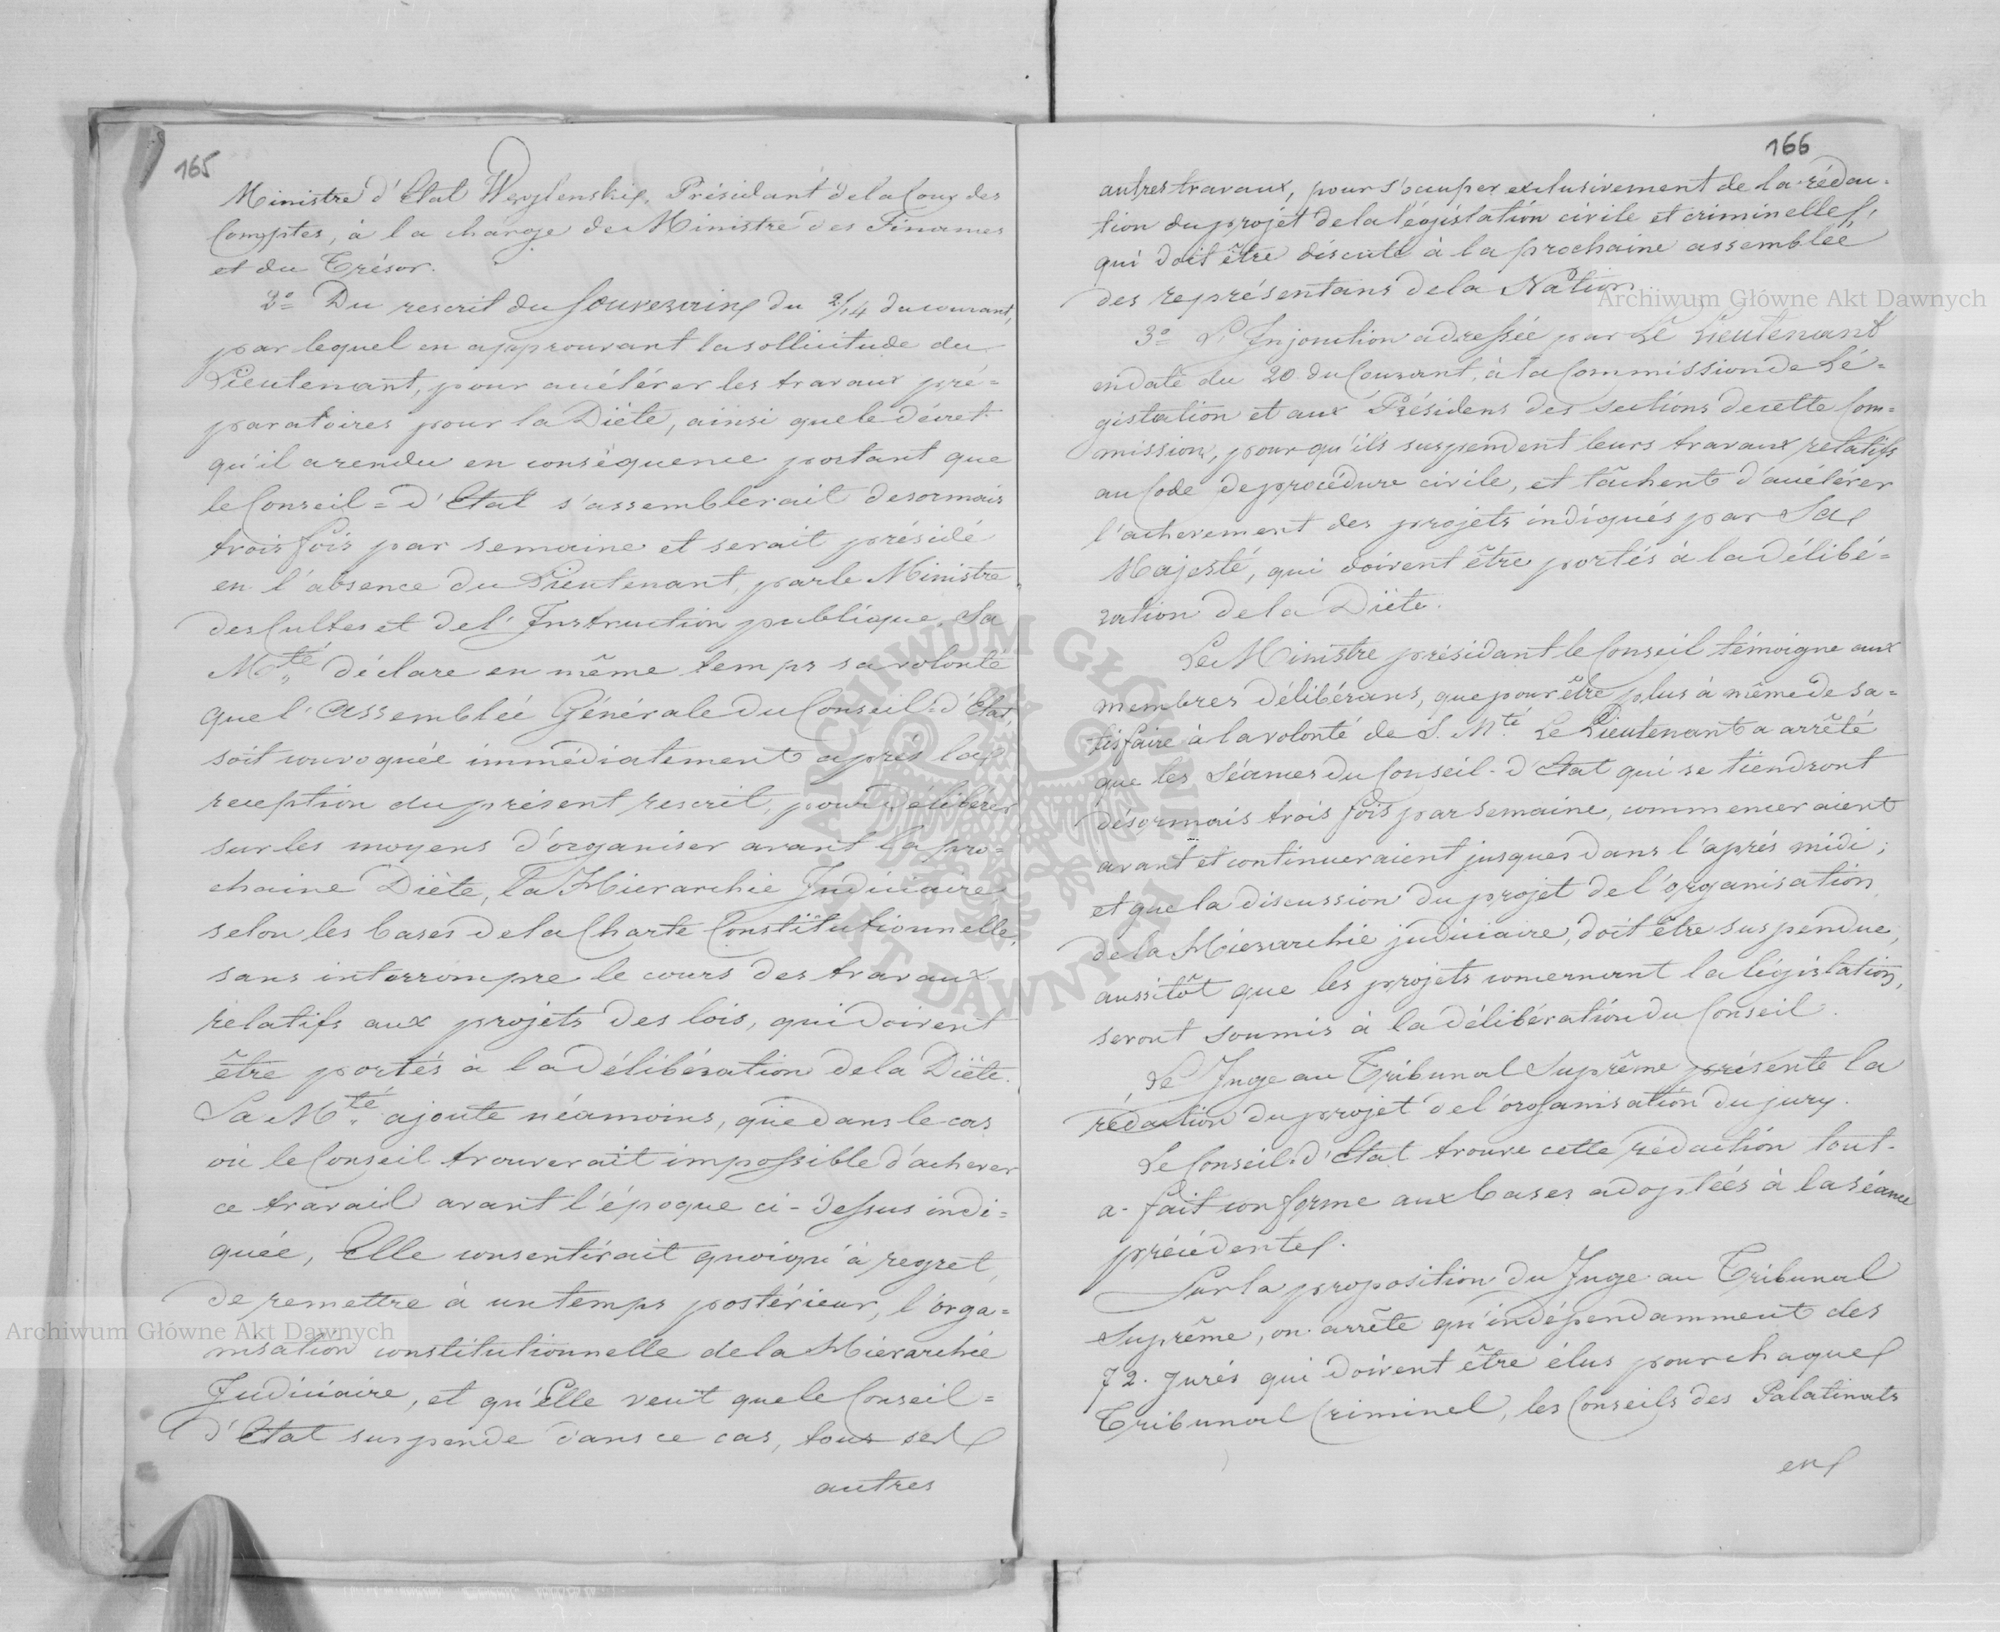 165
Ministre d'Etat Węglenski, Présidant de la Cour des
Comptes, à la charge de Ministre des Finances
et du Trésor.
2º Du rescrit du Souverain du 2/14 du courant,
par lequel en approuvant la sollicitude du
Lieutenant, pour accélérer les travaux pré=
paratoires pour la Diète, ainsi que le décret
qu'il a rendu en conséquence portant que
le Conseil=d'Etat s'assemblerait desormais
trois fois par semaine et serait présidé
en l'absence du Lieutenant, par le Ministre
des Cultes et de l'Instruction publique, Sa
Mté déclare en même temps sa volonté
que l'Assemblée Générale du Conseil d'Etat,
soit convoquée immédiatement après la
reception du présent rescrit, pour délibérer
sur les moyens d'organiser avant la pro=
chaine Diète, la Hierarchie Judiciaire
selon les bases de la Charte Constitutionnelle,
sans interrompre le cours des travaux
relatifs aux projets des lois, qui doivent
être portés à la délibération de la Diète.
Sa Mté ajoute néamoins, que dans le cas
où le Conseil trouverait impossible d'achever
ce travail avant l'époque ci-dessus indi=
quée, Elle consentirait quoiqu'à regret,
de remettre à un temps postérieur, l'orga=
nisation constitutionnelle de la Hiérarchie
Judiciaire, et qu'Elle veut que le Conseil=
d'Etat suspende dans ce cas, tous ses
autres
166
autres travaux, pour s'occuper exclusivement de la rédac-
tion du projet de la législation civile et criminelle,
qui doit être discuté à la prochaine assemblée
des représentans de la Nation
3º L'Injonction adressée par Le Lieutenant
en date du 20 du Courant, à la Commission de Lé=
gislation et aux Présidens des sections de cette Com=
mission, pour qu'ils suspendent leurs travaux relatifs
au Code de procédure civile, et tâchent d'accélérer
l'achevement des projets indiqués par Sa
Majesté, qui doivent être portés à la délibé=
ration de la Diète.
Le Ministre présidant le Conseil témoigne aux
membres délibérans, que pour être plus à même de sa=
tisfaire à la volonté de S. Mté Le Lieutenant a arrêté
que les Séances du Conseil-d'Etat qui se tiendront
désormais trois fois par semaine, commenceraient
avant et continueraient jusques dans l'après midi;
et que la discussion du projet de l'organisation
de la Hierarchie judiciaire, doit être suspendue,
aussitôt que les projets concernant la législation,
seront soumis à la délibération du Conseil.
Le Juge au Tribunal Suprême présente la
rédaction du projet de l'organisation du jury.
Le Conseil d'Etat trouve cette rédaction tout-
a-fait conforme aux bases adoptées à la séance
précédente.
Sur la proposition du Juge au Tribunal
Suprême, on arrête qu'indépendamment des
72. Jurés qui doivent être élus pour chaque
Tribunal Criminel, les Conseils des Palatinats
en
Archiwum Główne Akt Dawnych
Archiwum Główne Akt Dawnych
ARCHIWUM GŁÓWNE AKT DAWNYCH